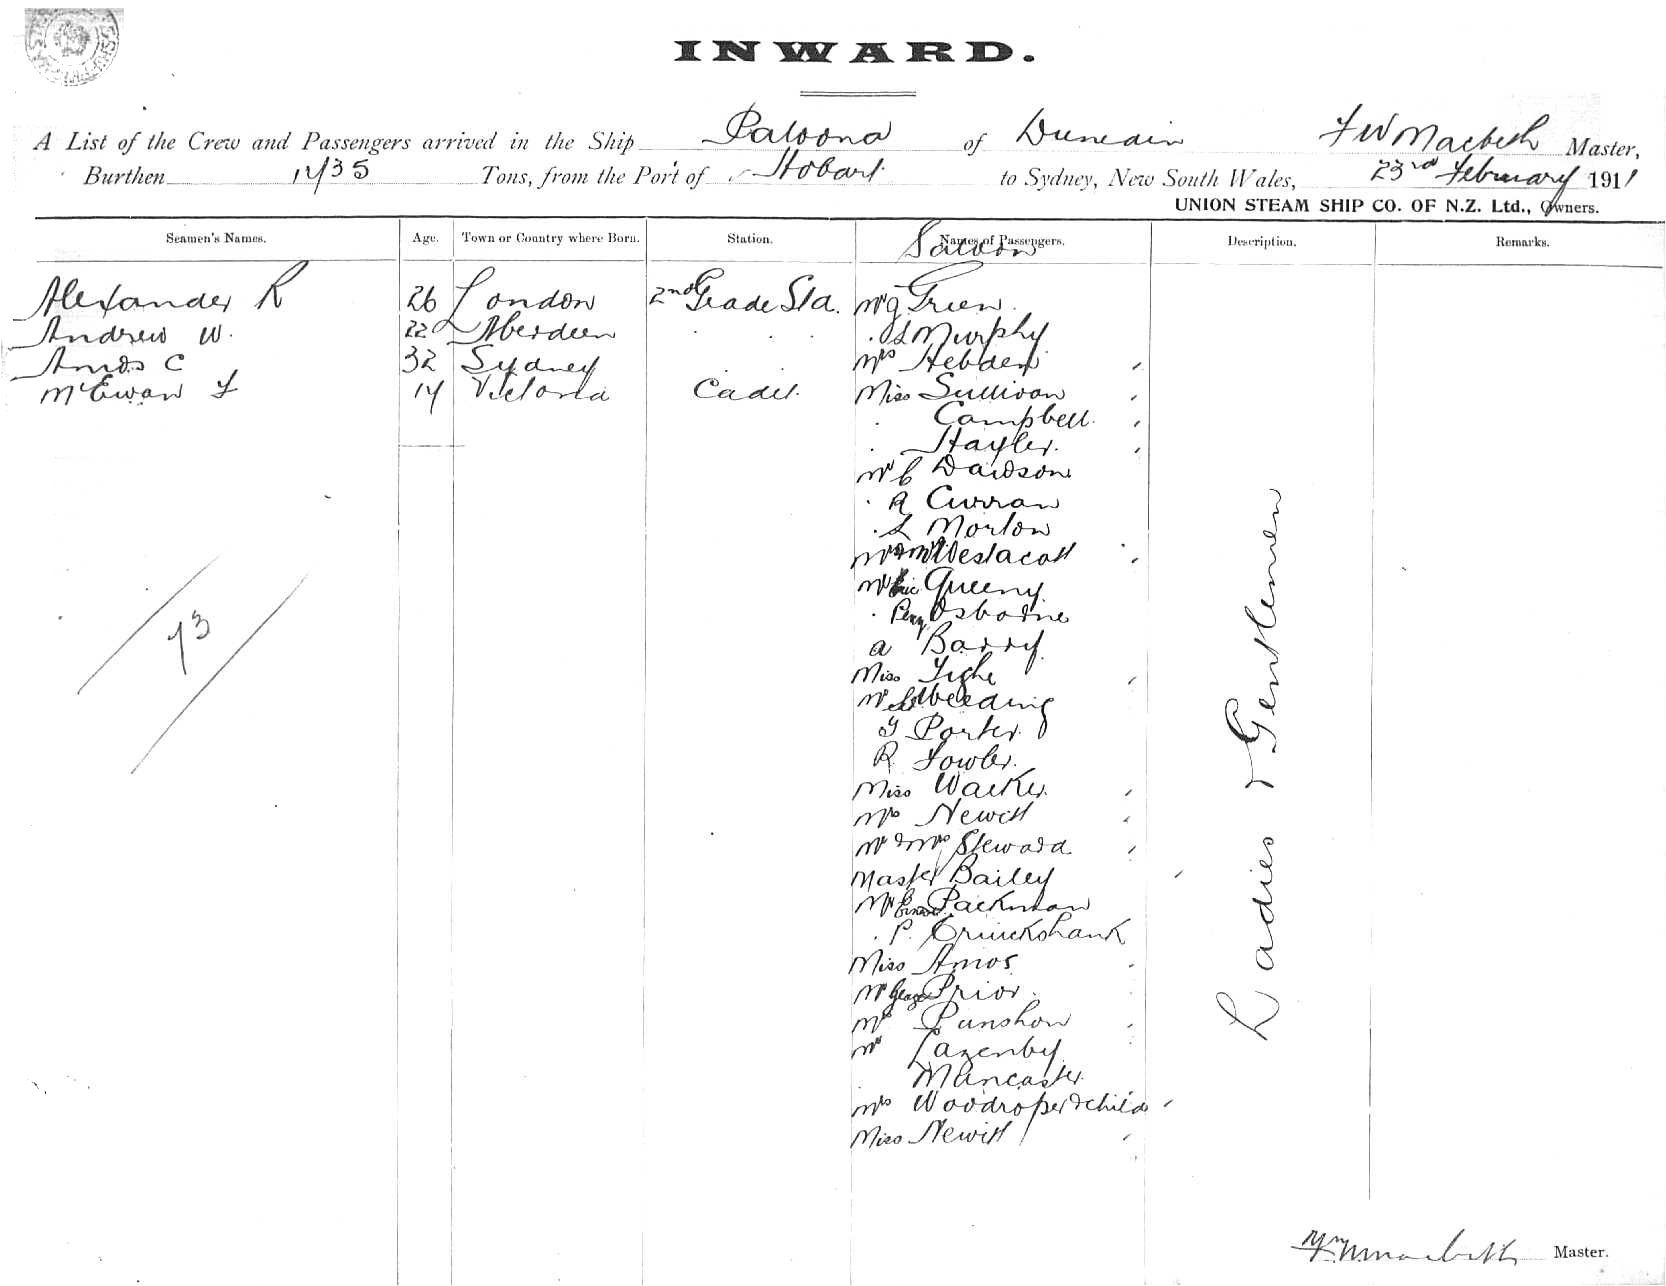 INWARD.
A List of the Crew and Passengers arrived in the Ship Paloona of Dunedin F W Macbeth Master,
Burthen 1435 Tons, from the Port of Hobart to Sydney, New South Wales, 23rd February 1911
UNION STEAM SHIP CO. OF N.Z. Ltd., Owners.
Seamen's Names. Age. Town or Country where Born. Station. Names of Passengers. Description. Remarks.
Saloon
Alexander R 26 London 2nd Grade Sta. Mr J Green
Andrew W. 22 Aberdeen Murphy
Amos C 32 Sydney Mrs Hebden
McEwan F 14 Victoria Cadet. Miss Sullivan
Campbell.
Hayler.
Mr C Davidson
R Curran
L Morton
Westacott
Mr Eric Queeny
Percy Osborne
A Barry
Miss Tighe
Mr Weeding
G Porter
R Fowler.
Miss Walker.
Mrs Newitt
Mr & Mrs Steward
Master Bailey
Mr Packman
P. Cruickshank
Miss Amos
Mr George Prior.
Punshon
Mr Lazenby
Muncaster
Mrs Woodroper & child
Miss Newitt
Ladies & Gentlemen
73
Master.